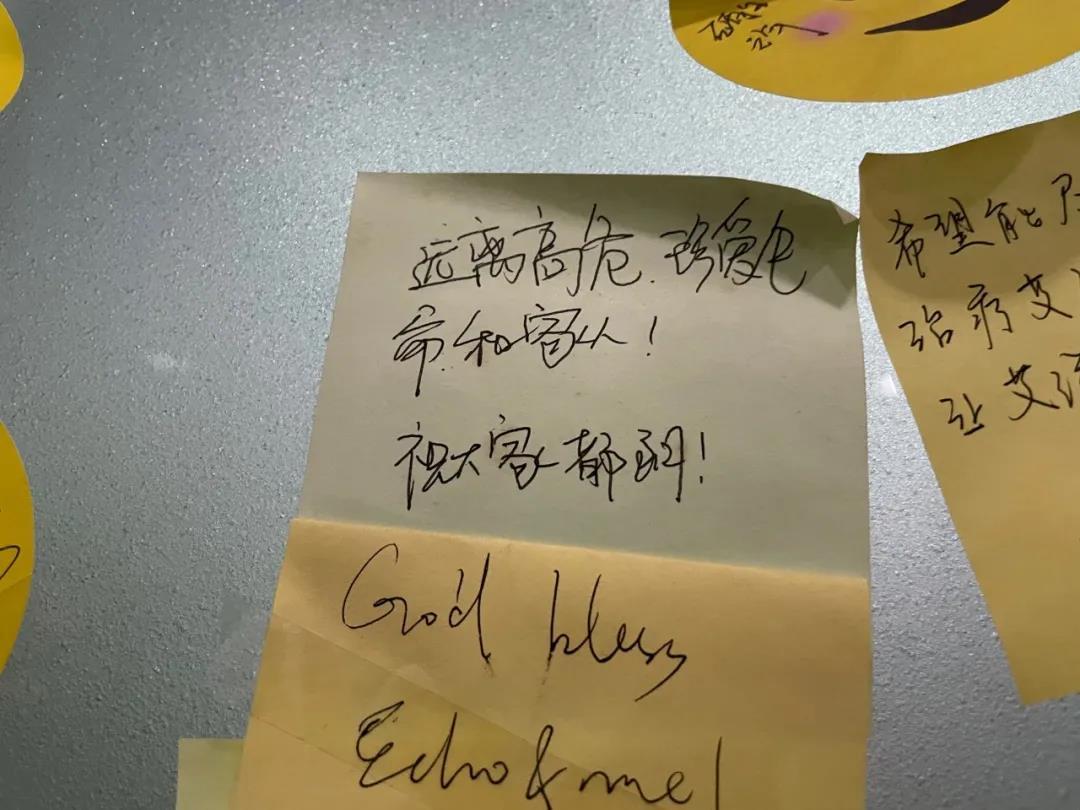 远离高危.珍爱生
命和家人!
祝大家都阴!
God bless
Echo & me!
希望能尽
治疗艾
让艾滋